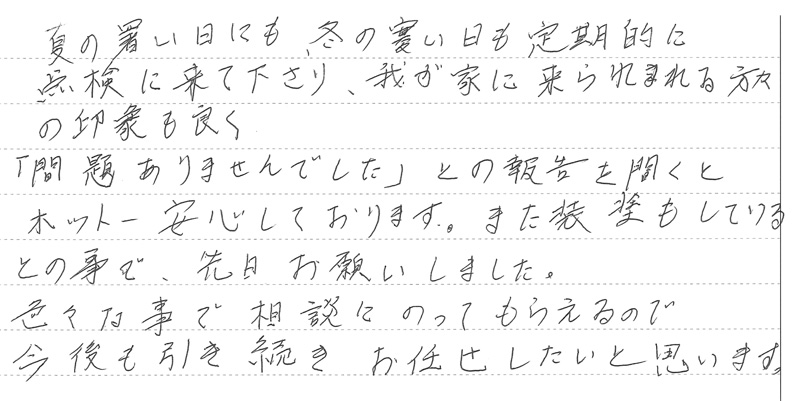 夏の暑い日にも、冬の寒い日も定期的に
点検に来て下さり、我が家に来られまれる方々
の印象も良く
「問題ありませんでした」との報告を聞くと
ホット一安心しております。また装塗もしている
との事で、先日お願いしました。
色々な事で相談にのってもらえるので
今後も引き続きお任せしたいと思います。